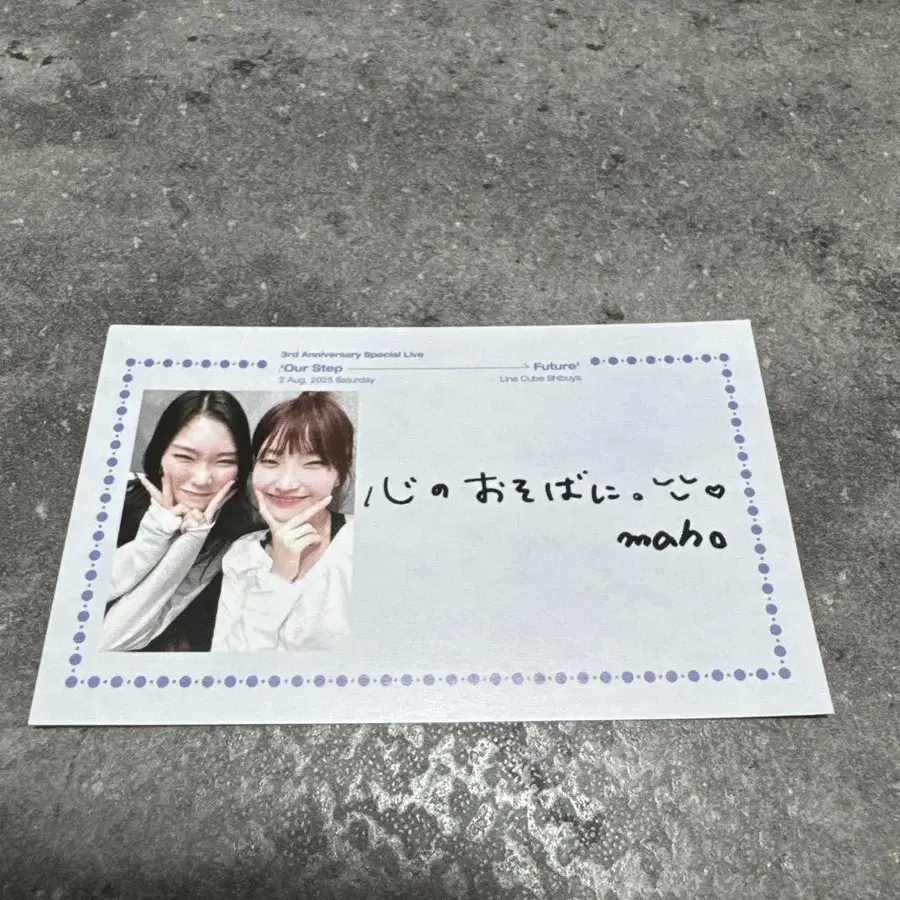 3rd Anniversary Special Live
'Our Step Future'
2 Aug, 2025 Saturday
Line Cube Shibuya
心のおそばに。
maho